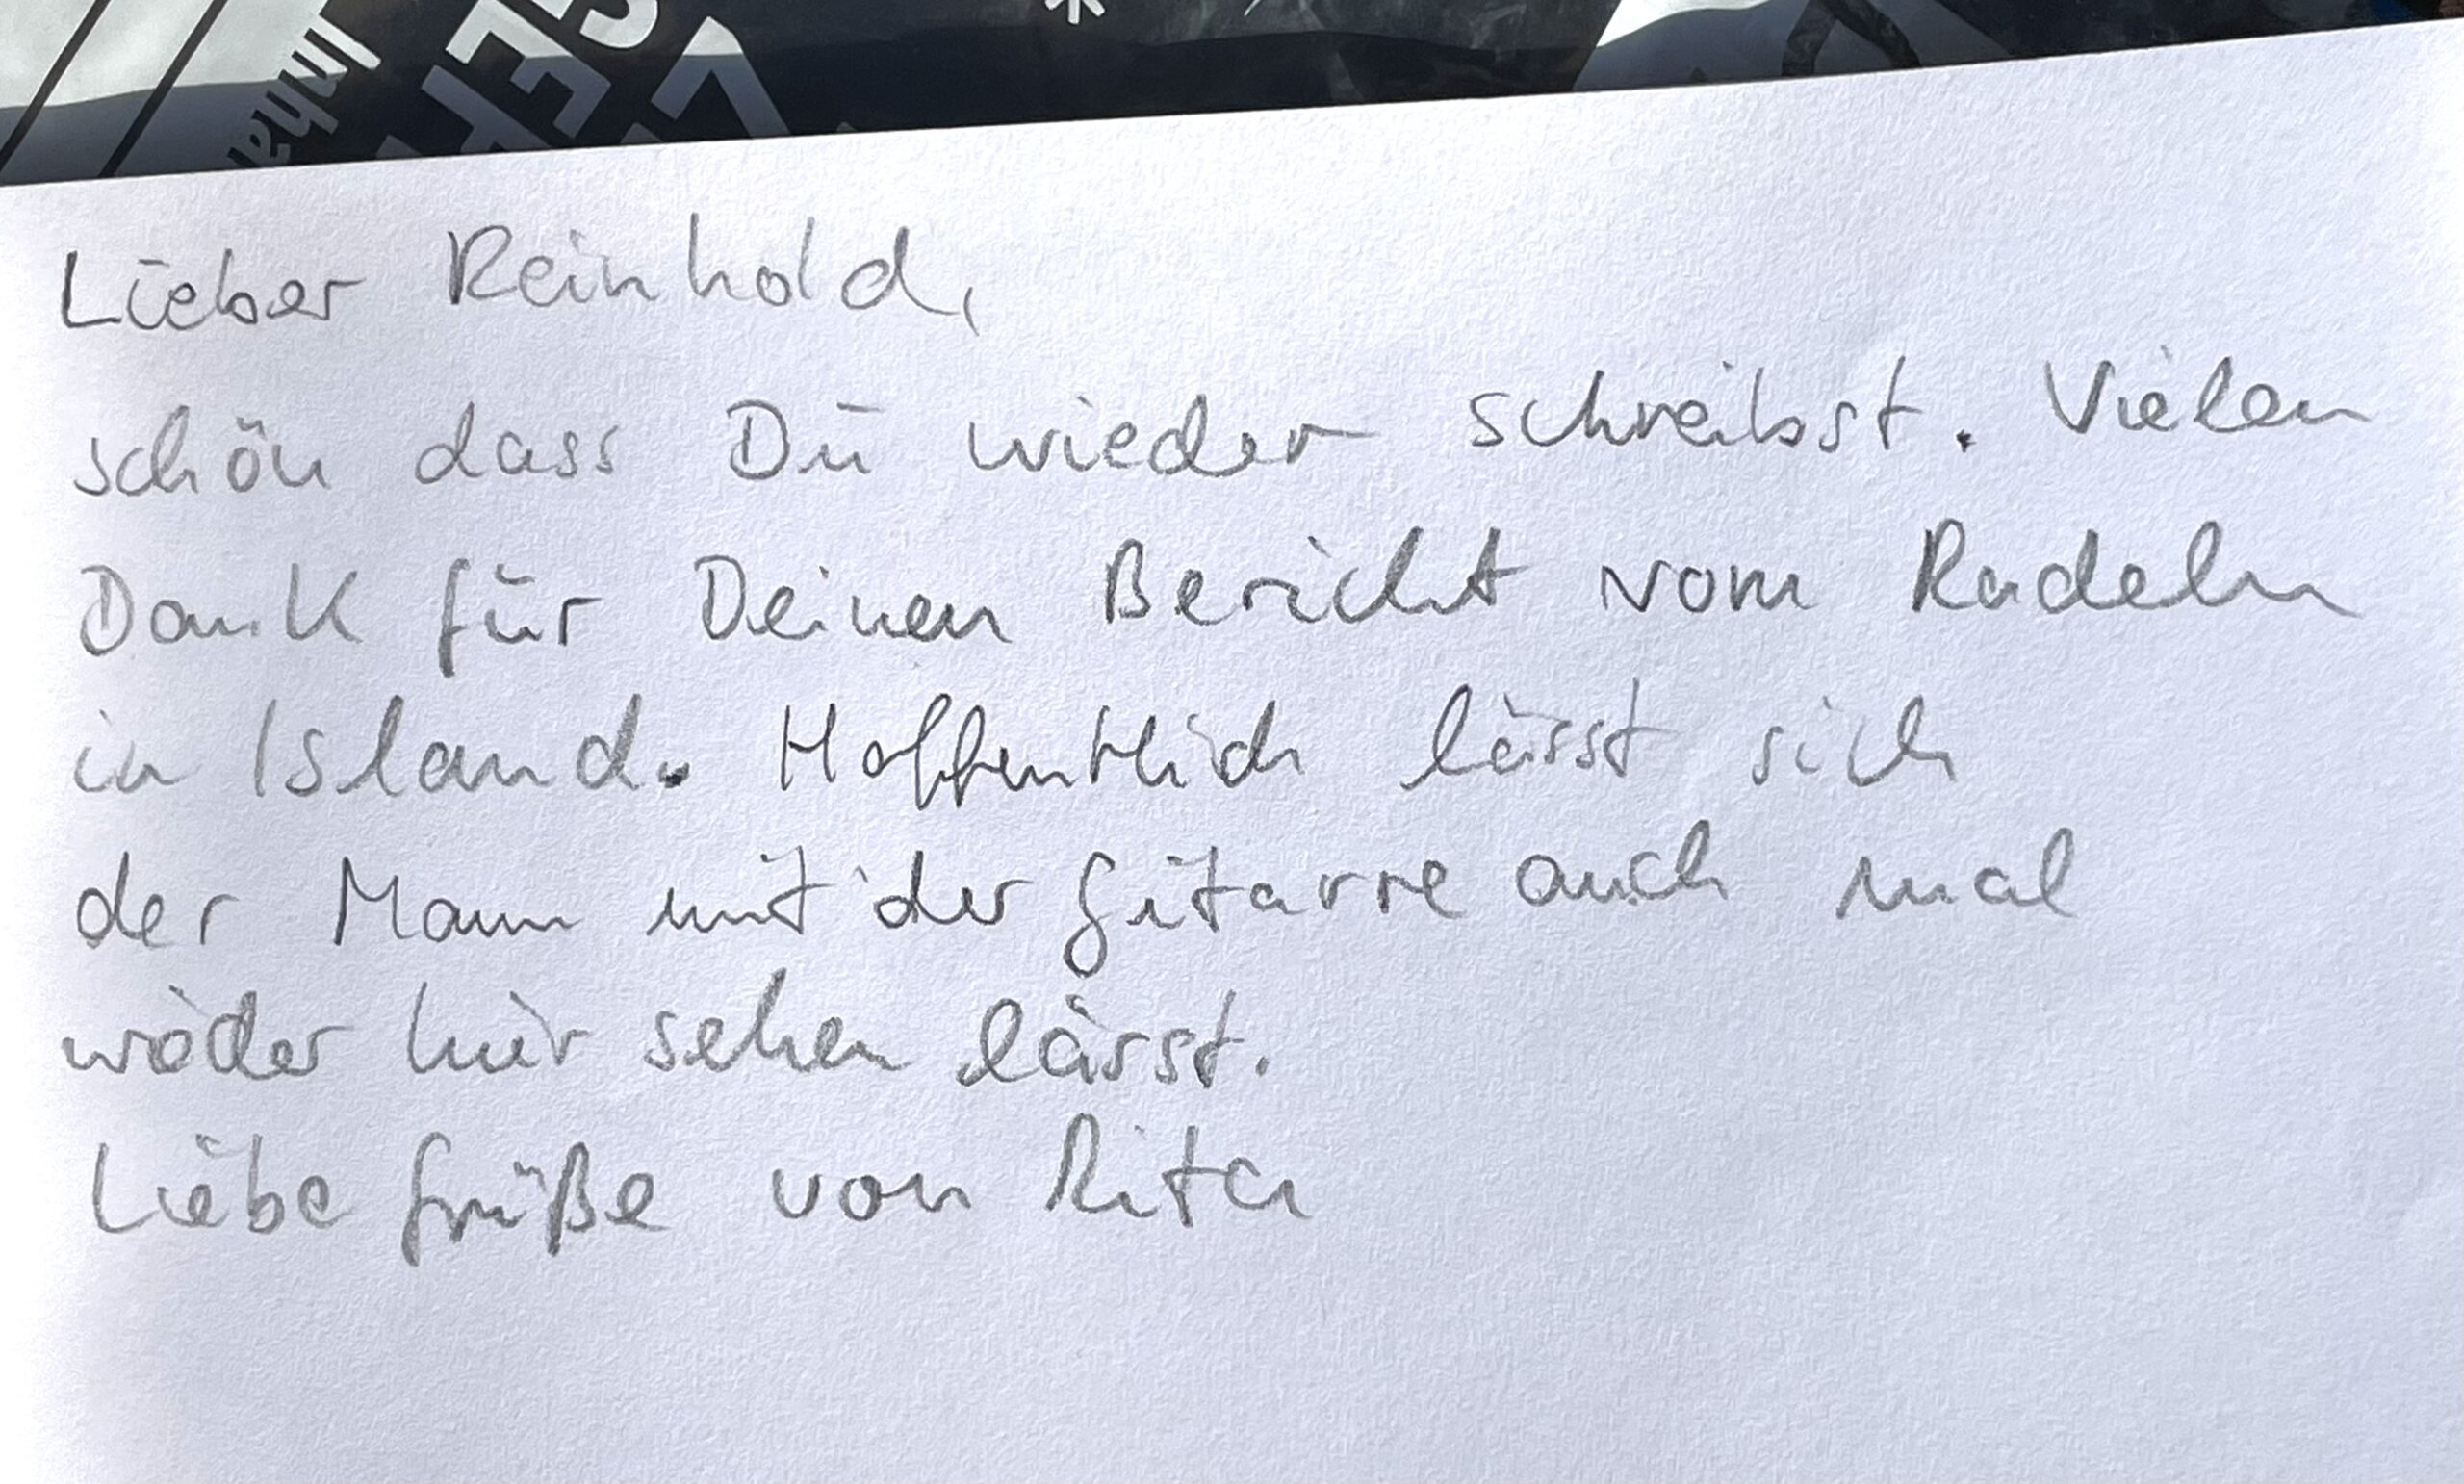 Lieber Reinhold,
schön dass Du wieder schreibst. Vielen
Dank für Deinen Bericht vom Radeln
in Island. Hoffentlich lässt sich
der Mann mit der Gitarre auch mal
wieder hier sehen lässt.
Liebe Grüße von Rita